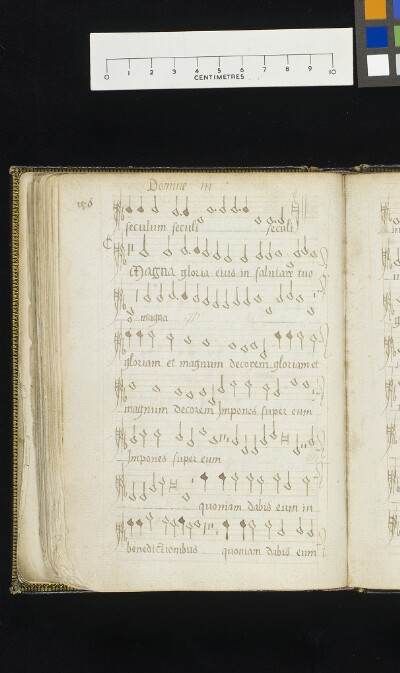 0 1 2 3 4 5 6 7 8 9 10
CENTIMETRES
Domine in
seculum seculi seculi
Magna gloria eius in salutare tuo
magna
gloriam et magnum decorem gloriam et
magnum decorem Impones super eum
Impones super eum
quoniam dabis eum in
benedictionibus quoniam dabis eum